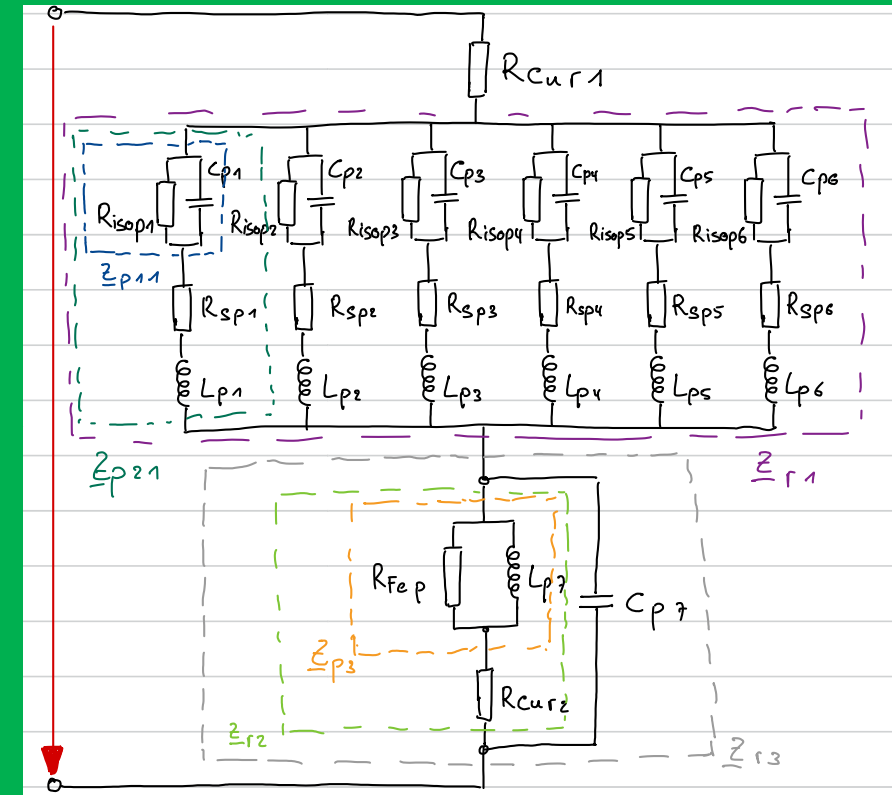 RCur1
Cp1 Cp2 Cp3 Cp4 Cp5 Cp6
Risop1 Risop2 Risop3 Risop4 Risop5 Risop6
Zp11
Rsp1 Rsp2 Rsp3 Rsp4 Rsp5 Rsp6
Lp1 Lp2 Lp3 Lp4 Lp5 Lp6
Zp21 Zr1
RFep Lp7 Cp7
Zp3
RCur2
Zr2 Zr3